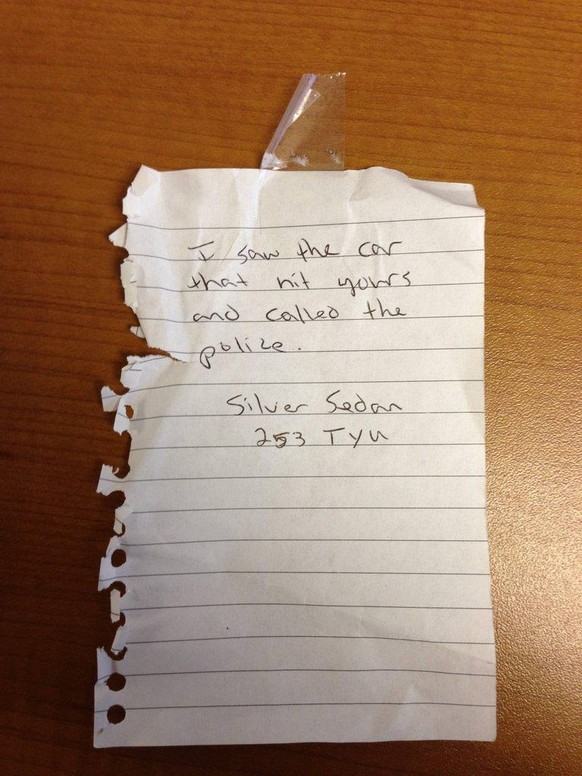 I saw the car
that hit yours
and called the
police.
Silver Sedan
253 TYU